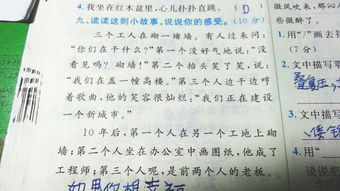 4.我坐在红木盆里,心儿扑扑直跳。 (D)
九、读读这则小故事,说说你的感受。(10分)
三个工人在砌一堵墙。有人过来问:
“你们在干什么?”第一个没好气地说:“没
看见吗?砌墙!”第二个抬头笑了笑,说:
“我们在盖一幢高楼。”第三个人边干边哼
着歌曲,他的笑容很灿烂:“我们正在建设
一个新城市。”
10年后,第一个人在另一个工地上砌
墙;第二个人坐在办公室中画图纸,他成了
工程师;第三个人呢,是前两个人的老板。
如果你想幸福
微风吹来,那
些微醉了。
1.用“/”画去
(7分)
2.文中描写
3.文中描写
4.用“